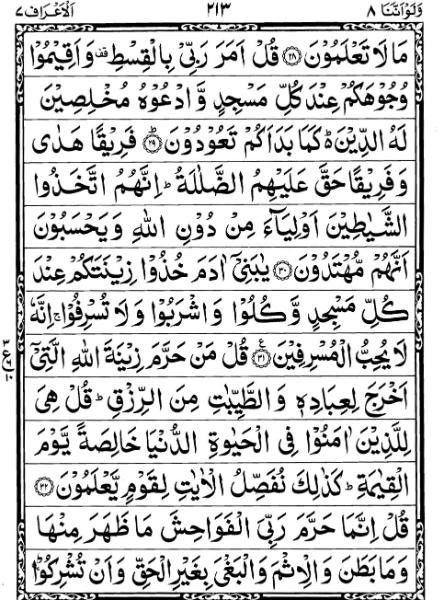 وَلَوْ اَنَّنَا ٨ ٢١٣ اَلْاَعْرَاف ٧
مَا لَا تَعْلَمُوْنَ ﴿۲۸﴾ قُلْ اَمَرَ رَبِّیْ بِالْقِسْطِ قف وَ اَقِیْمُوْا
وُجُوْهَكُمْ عِنْدَ كُلِّ مَسْجِدٍ وَّ ادْعُوْهُ مُخْلِصِیْنَ
لَهُ الدِّیْنَ ؕ كَمَا بَدَاَكُمْ تَعُوْدُوْنَ ﴿ؕ۲۹﴾ فَرِیْقًا هَدٰی
وَ فَرِیْقًا حَقَّ عَلَیْهِمُ الضَّلٰلَةُ ؕ اِنَّهُمُ اتَّخَذُوا
الشَّیٰطِیْنَ اَوْلِیَآءَ مِنْ دُوْنِ اللّٰهِ وَ یَحْسَبُوْنَ
اَنَّهُمْ مُّهْتَدُوْنَ ﴿۳۰﴾ یٰبَنِیْۤ اٰدَمَ خُذُوْا زِیْنَتَكُمْ عِنْدَ
كُلِّ مَسْجِدٍ وَّ كُلُوْا وَ اشْرَبُوْا وَ لَا تُسْرِفُوْا ۚ اِنَّهٗ
لَا یُحِبُّ الْمُسْرِفِیْنَ ﴿۳۱﴾ ع قُلْ مَنْ حَرَّمَ زِیْنَةَ اللّٰهِ الَّتِیْۤ
اَخْرَجَ لِعِبَادِهٖ وَ الطَّیِّبٰتِ مِنَ الرِّزْقِ ؕ قُلْ هِیَ
لِلَّذِیْنَ اٰمَنُوْا فِی الْحَیٰوةِ الدُّنْیَا خَالِصَةً یَّوْمَ
الْقِیٰمَةِ ؕ كَذٰلِكَ نُفَصِّلُ الْاٰیٰتِ لِقَوْمٍ یَّعْلَمُوْنَ ﴿۳۲﴾
قُلْ اِنَّمَا حَرَّمَ رَبِّیَ الْفَوَاحِشَ مَا ظَهَرَ مِنْهَا
وَ مَا بَطَنَ وَ الْاِثْمَ وَ الْبَغْیَ بِغَیْرِ الْحَقِّ وَ اَنْ تُشْرِكُوْا